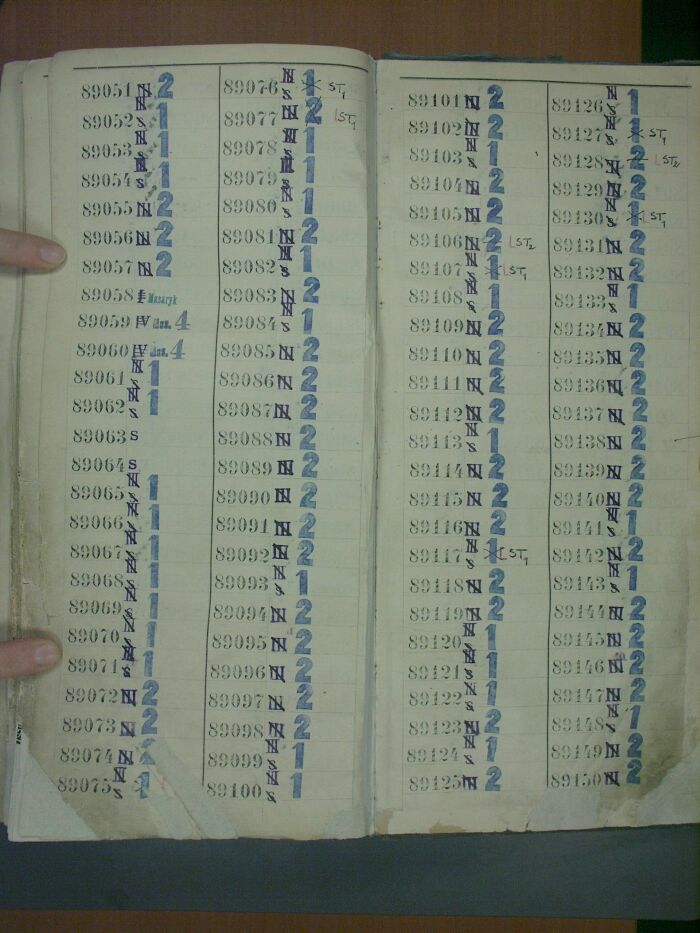 89051 N 2
89052 N S 1
89053 N S 1
89054 N S 1
89055 N 2
89056 N 2
89057 N 2
89058 I Masaryk
89059 IV Han. 4
89060 IV Han. 4
89061 N S 1
89062 N S 1
89063 S
89064 S
89065 N S 1
89066 N S 1
89067 N S 1
89068 N S 1
89069 N S 1
89070 N S 1
89071 N S 1
89072 N 2
89073 N 2
89074 N 2
89075 N S 1
89076 N S 1 ST1
89077 N 2 LST1
89078 N S 1
89079 N S 1
89080 N S 1
89081 N 2
89082 N S 1
89083 N 2
89084 N S 1
89085 N 2
89086 N 2
89087 N 2
89088 N 2
89089 N 2
89090 N 2
89091 N 2
89092 N 2
89093 N S 1
89094 N 2
89095 N 2
89096 N 2
89097 N 2
89098 N 2
89099 N S 1
89100 N S 1
89101 N 2
89102 N 2
89103 N S 1
89104 N 2
89105 N 2
89106 N 2 LST2
89107 N S 1 LST1
89108 N S 1
89109 N 2
89110 N 2
89111 N 2
89112 N 2
89113 N S 1
89114 N 2
89115 N 2
89116 N 2
89117 N S 1 LST1
89118 N 2
89119 N 2
89120 N S 1
89121 N S 1
89122 N S 1
89123 N 2
89124 N S 1
89125 N 2
89126 N S 1
89127 N S 1 ST1
89128 N 2 LST2
89129 N 2
89130 N S 1 LST1
89131 N 2
89132 N 2
89133 N S 1
89134 N 2
89135 N 2
89136 N 2
89137 N 2
89138 N 2
89139 N 2
89140 N 2
89141 N S 1
89142 N 2
89143 N S 1
89144 N 2
89145 N 2
89146 N 2
89147 N 2
89148 N S 1
89149 N 2
89150 N 2